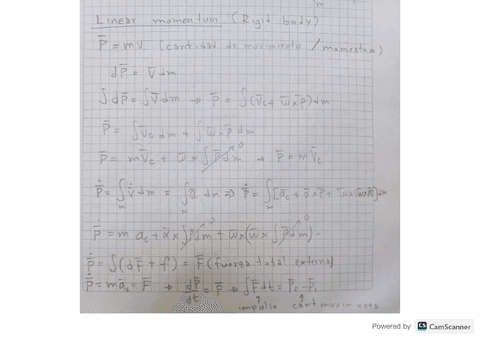 Linear momentum (Rigid body)
P̄ = mv (cantidad de movimiento / momentum)
dP̄ = V̄ dm
∫dP̄ = ∫V̄ dm → P̄ = ∫(V̄c + w̄ x ρ̄) dm
P̄ = ∫V̄c dm + ∫w̄ x ρ̄ dm
P̄ = m V̄c + w̄ x ∫ρ̄ dm 0 → P̄ = m V̄c
Ṗ = ∫m V̇ dm = ∫m ā dm => Ṗ = ∫m [āc + ᾱ x ρ̄ + w̄ x (w̄ x ρ̄)] dm
Ṗ = m ac + ᾱ x ∫ρ̄ dm 0 + w̄ x (w̄ x ∫ρ̄ dm 0)
Ṗ = ∫(dF̄ + f) = F̄ (fuerza total externa)
Ṗ = m āc = F̄ → dP̄/dt = F̄ → ∫F̄ dt = P̄2 - P̄1
impulso cant movimiento
Powered by CS CamScanner